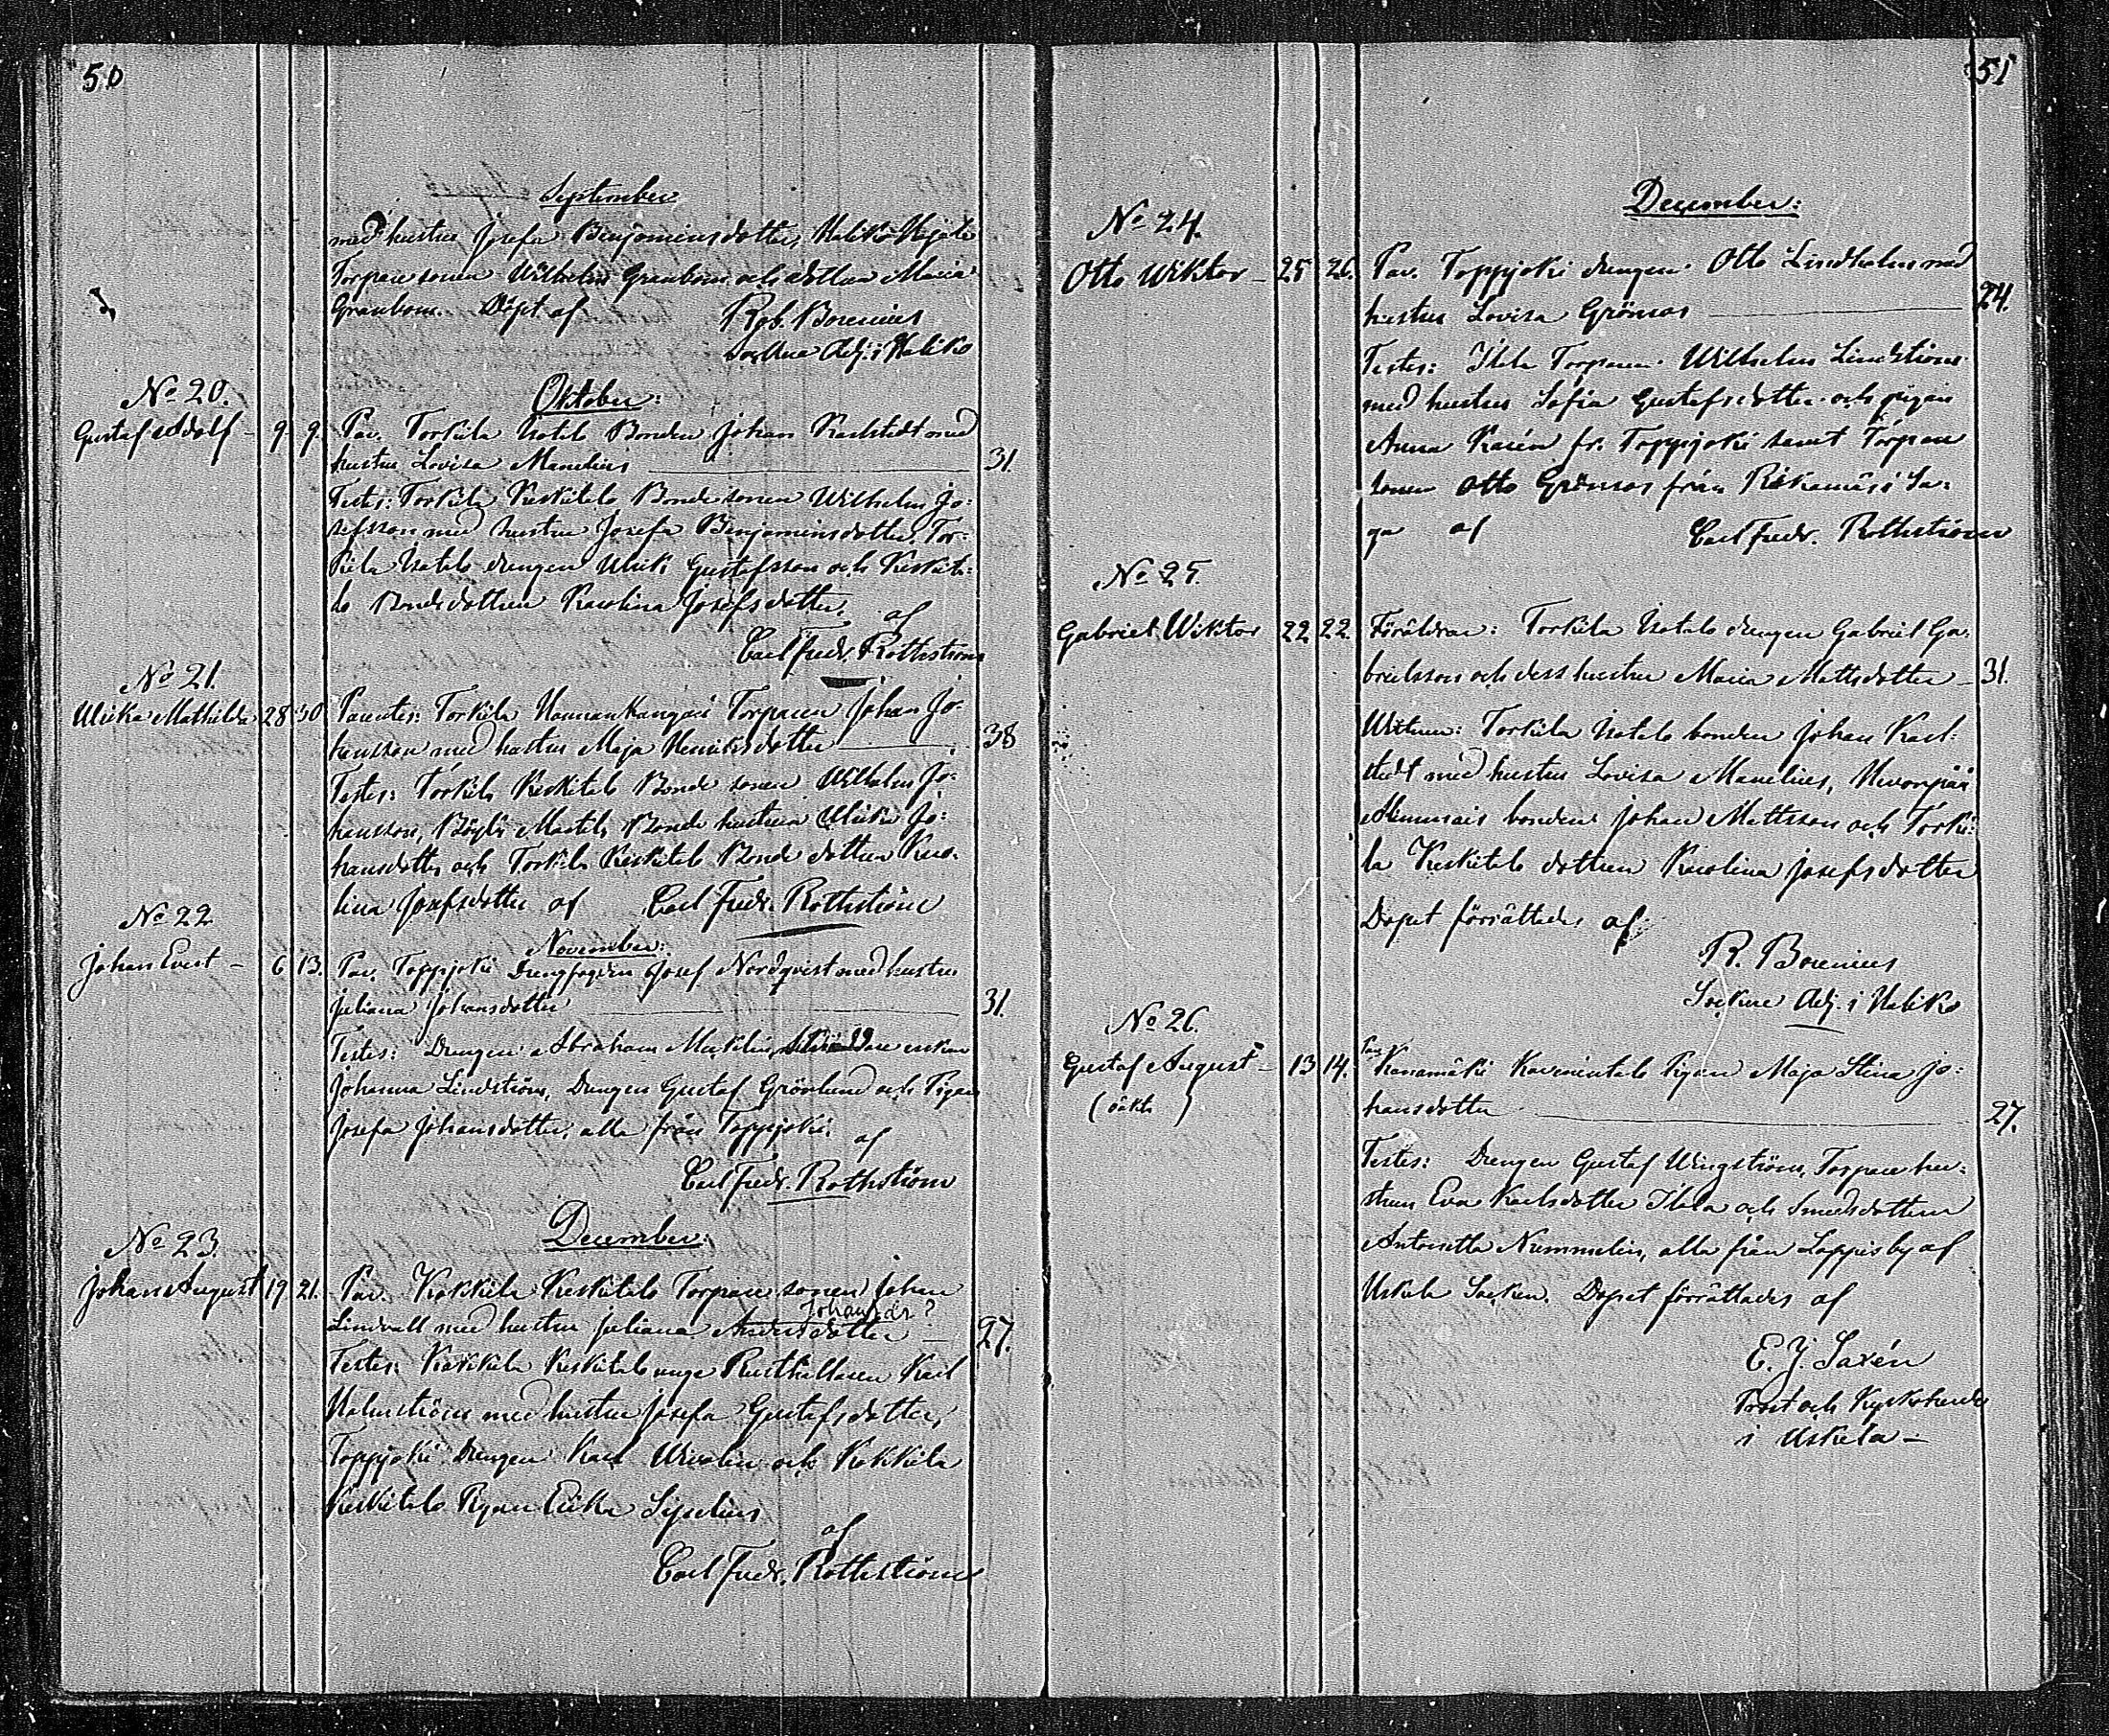 50
September
med hustru Josefa Benjaminsdotter, Haliko Hajala
Torpare sonen Wilhelm Granbom och dottren Maria
Granbom. Döpt af Rob. Borenius
Sockne Adj. i Haliko
No 20. Oktober:
Gustaf Adolf - 9 9. Par. Torkila Isotalo Bonden Johan Karlstedt med
hustru Lovisa Manelius 31.
Testes: Torkila Keskitalo Bonde sonen Wilhelm Jo-
sefsson med hustru Josefa Benjaminsdotter, Tor-
kila Isotalo drengen Ulrik Gustafsson och Keskita-
lo Bondedottren Karolina Josefsdotter,
af
Carl Fredr. Rothström
No 21.
Ulrika Mathilda 28 30 Parentes: Torkila Torparen Johan Jo-
hansson med hustru Maja Henriksdotter 38
Testes: Torkila Keskitalo Bonde sonen Wilhelm Jo-
hansson, Martila Bonde hustrun Ulrika Jo-
hansdotter och Torkila Keskitalo Bonde dottren Karo-
lina Josefsdotter af Carl Fredr. Rothström
No 22. November:
Johan Evert - 6 13. Par. Toppjoki Drengfogden Josef Nordqvist med hustru
Juliana Johansdotter 31.
Testes: Drengen Abraham enkan
Johanna Lindström, Drengen Gustaf Grönlund och Pigan
Josefa Johansdotter, alla från Toppjoki.
af
Carl Fredr. Rothström
No 23. December:
Johan August 19 21. Par. Kokkila Keskitalo Torpare sonen Johan
Johansdr?
Lindvall med hustru Juliana Andersdotter 27.
Testes: Kokkila Keskitalo unge Rusthållaren Karl
Holmström med hustru Josefa Gustafsdotter,
Toppjoki Drengen Karl och Kokkila
Keskitalo Pigan Erika
af
Carl Fredr. Rothström
51
December:
No 24.
Otto Wiktor - 25 26. Par. Toppjoki drengen Otto Lindholm med
hustru Lovisa Grönroos 24.
Testes: Torparen Wilhelm Lindström
med hustru Sofia Gustafsdotter och pigan
Anna Karén fr. Toppjoki samt Torpare
sonen Otto Grönroos från Sa-
gu af Carl Fredr. Rothström
No 25.
Gabriel Wiktor 22 22. Föräldrar: Torkila Isotalo drengen Gabriel Ga-
brielsson och dess hustru Maria Mattsdotter - 31.
Wittnen: Torkila Isotalo bonden Johan Karl-
stedt med hustru Lovisa Manelius,
bonden Johan Mattsson och Torki-
la Keskitalo dottren Karolina Josefsdotter
Dopet förrättades af
R. Borenius
Sockne Adj. i Haliko
No 26.
Par.
Gustaf August - 13 14. Pigan Maja Stina Jo-
(oäkta) hansdotter 27.
Testes: Drengen Gustaf Wingström, Torpare hu-
strun Eva Karlsdotter och Smedsdottren
Antoinetta Nummelin, alla från Lappis by af
Uskela Socken. Dopet förrättades af
E. J. Saxén
Prost och Kyrkoherde
i Uskela -